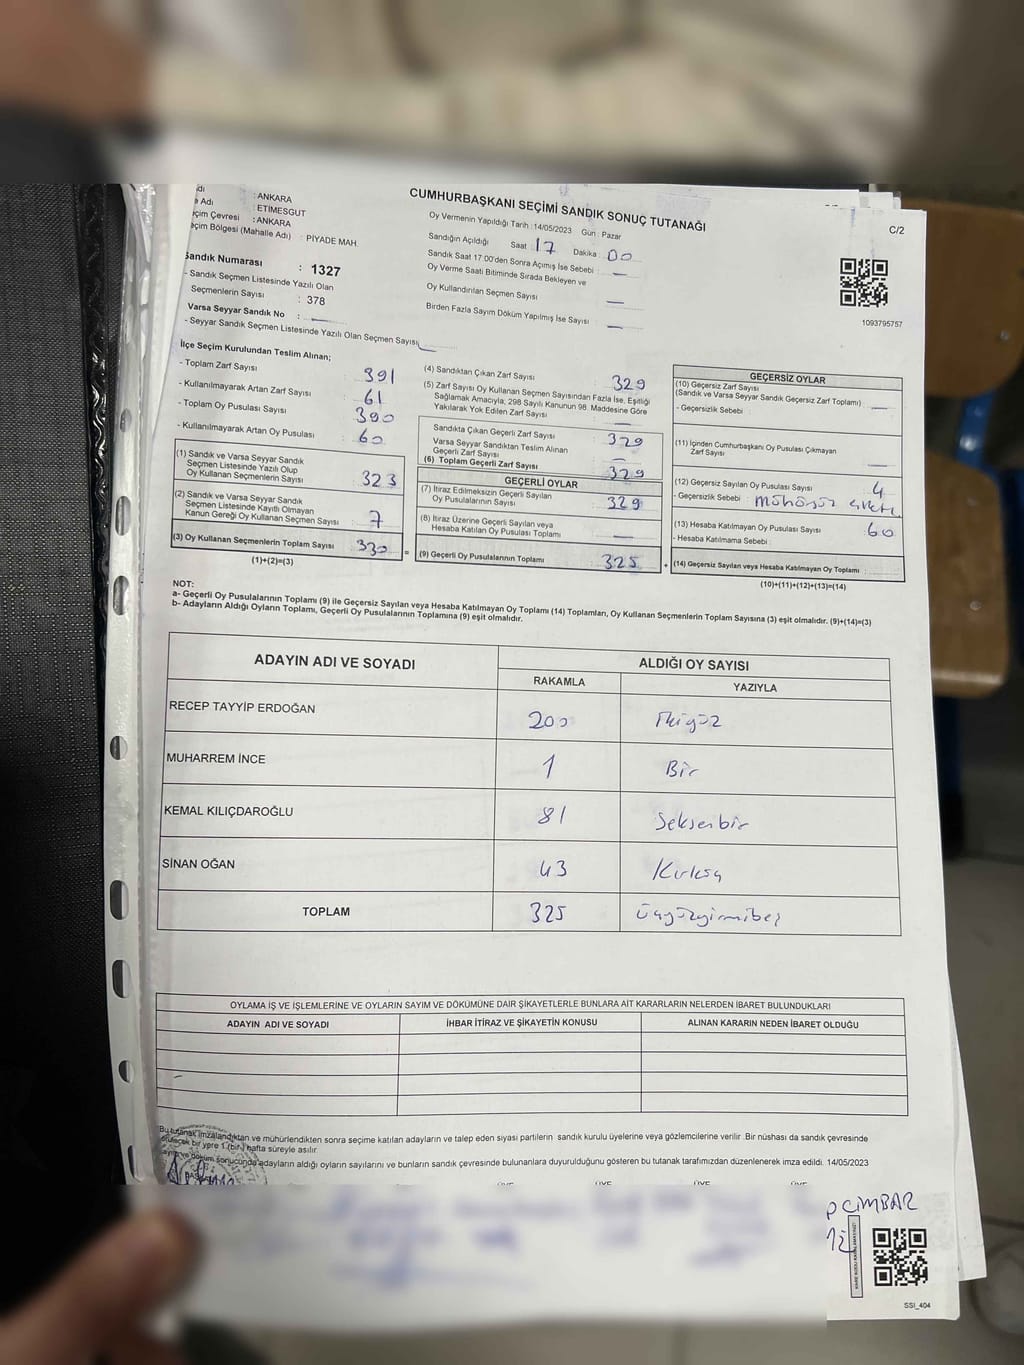 CUMHURBAŞKANI SEÇİMİ SANDIK SONUÇ TUTANAĞI
C/2
dı : ANKARA
Adı : ETİMESGUT
çim Çevresi : ANKARA
eçim Bölgesi (Mahalle Adı) : PİYADE MAH.
Oy Vermenin Yapıldığı Tarih : 14/05/2023 Gün : Pazar
Sandığın Açıldığı Saat : 17 Dakika : 00
Sandık Saat 17.00'den Sonra Açımış İse Sebebi : —
Oy Verme Saati Bitiminde Sırada Bekleyen ve
Oy Kullandırılan Seçmen Sayısı : —
Birden Fazla Sayım Döküm Yapılmış İse Sayısı : —
1093795757
Sandık Numarası : 1327
- Sandık Seçmen Listesinde Yazılı Olan
Seçmenlerin Sayısı : 378
Varsa Seyyar Sandık No : —
- Seyyar Sandık Seçmen Listesinde Yazılı Olan Seçmen Sayısı
İlçe Seçim Kurulundan Teslim Alınan;
- Toplam Zarf Sayısı : 391
- Kullanılmayarak Artan Zarf Sayısı : 61
- Toplam Oy Pusulası Sayısı : 390
- Kullanılmayarak Artan Oy Pusulası : 60
(1) Sandık ve Varsa Seyyar Sandık
Seçmen Listesinde Yazılı Olup
Oy Kullanan Seçmenlerin Sayısı : 323
(2) Sandık ve Varsa Seyyar Sandık
Seçmen Listesinde Kayıtlı Olmayan
Kanun Gereği Oy Kullanan Seçmen Sayısı : 7
(3) Oy Kullanan Seçmenlerin Toplam Sayısı : 330 =
(1)+(2)=(3)
(4) Sandıktan Çıkan Zarf Sayısı : 329
(5) Zarf Sayısı Oy Kullanan Seçmen Sayısından Fazla İse, Eşitliği
Sağlamak Amacıyla; 298 Sayılı Kanunun 98. Maddesine Göre
Yakılarak Yok Edilen Zarf Sayısı : —
Sandıkta Çıkan Geçerli Zarf Sayısı : 329
Varsa Seyyar Sandıktan Teslim Alınan
Geçerli Zarf Sayısı : —
(6) Toplam Geçerli Zarf Sayısı : 329
GEÇERLİ OYLAR
(7) İtiraz Edilmeksizin Geçerli Sayılan
Oy Pusulalarının Sayısı : 329
(8) İtiraz Üzerine Geçerli Sayılan veya
Hesaba Katılan Oy Pusulası Toplamı : —
(9) Geçerli Oy Pusulalarının Toplamı : 325 +
GEÇERSİZ OYLAR
(10) Geçersiz Zarf Sayısı
(Sandık ve Varsa Seyyar Sandık Geçersiz Zarf Toplamı) : —
- Geçersizlik Sebebi :
(11) İçinden Cumhurbaşkanı Oy Pusulası Çıkmayan
Zarf Sayısı : —
(12) Geçersiz Sayılan Oy Pusulası Sayısı : 4
- Geçersizlik Sebebi :
(13) Hesaba Katılmayan Oy Pusulası Sayısı : 60
- Hesaba Katılmama Sebebi :
(14) Geçersiz Sayılan veya Hesaba Katılmayan Oy Toplamı :
(10)+(11)+(12)+(13)=(14)
NOT:
a- Geçerli Oy Pusulalarının Toplamı (9) ile Geçersiz Sayılan veya Hesaba Katılmayan Oy Toplamı (14) Toplamları, Oy Kullanan Seçmenlerin Toplam Sayısına (3) eşit olmalıdır. (9)+(14)=(3)
b- Adayların Aldığı Oyların Toplamı, Geçerli Oy Pusulalarının Toplamına (9) eşit olmalıdır.
ADAYIN ADI VE SOYADI ALDIĞI OY SAYISI
RAKAMLA YAZIYLA
RECEP TAYYİP ERDOĞAN 200 ikiyüz
MUHARREM İNCE 1 Bir
KEMAL KILIÇDAROĞLU 81 Seksenbir
SİNAN OĞAN 43 Kırküç
TOPLAM 325 üçyüzyirmibeş
OYLAMA İŞ VE İŞLEMLERİNE VE OYLARIN SAYIM VE DÖKÜMÜNE DAİR ŞİKAYETLERLE BUNLARA AİT KARARLARIN NELERDEN İBARET BULUNDUKLARI
ADAYIN ADI VE SOYADI İHBAR İTİRAZ VE ŞİKAYETİN KONUSU ALINAN KARARIN NEDEN İBARET OLDUĞU
Bu tutanak imzalandıktan ve mühürlendikten sonra seçime katılan adayların ve talep eden siyasi partilerin sandık kurulu üyelerine veya gözlemcilerine verilir. Bir nüshası da sandık çevresinde
1 (bir) hafta süreyle asılır.
ve döküm sonucunda adayların aldığı oyların sayılarını ve bunların sandık çevresinde bulunanlara duyurulduğunu gösteren bu tutanak tarafımızdan düzenlenerek imza edildi. 14/05/2023
ÜYE ÜYE ÜYE ÜYE
SSI_404